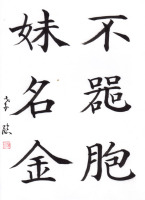 不噐胞
妹名金